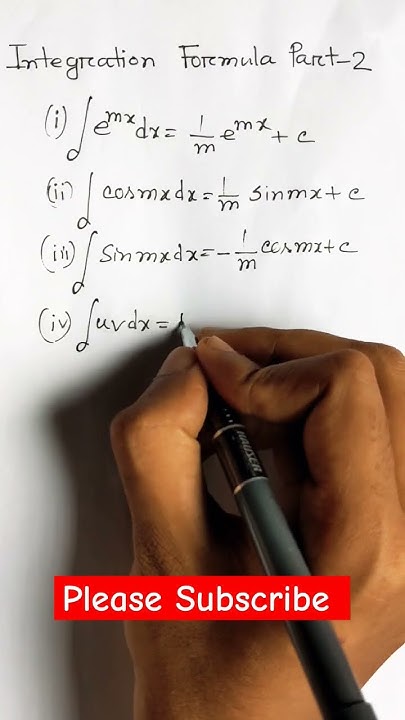 Integration Formula Part-2
(i) ∫e^mx dx = 1/m e^mx + c
(ii) ∫cosmxdx = 1/m sinmx + c
(iii) ∫sinmxdx = -1/m cosmx + c
(iv) ∫uvdx =
HAUSER
Please Subscribe